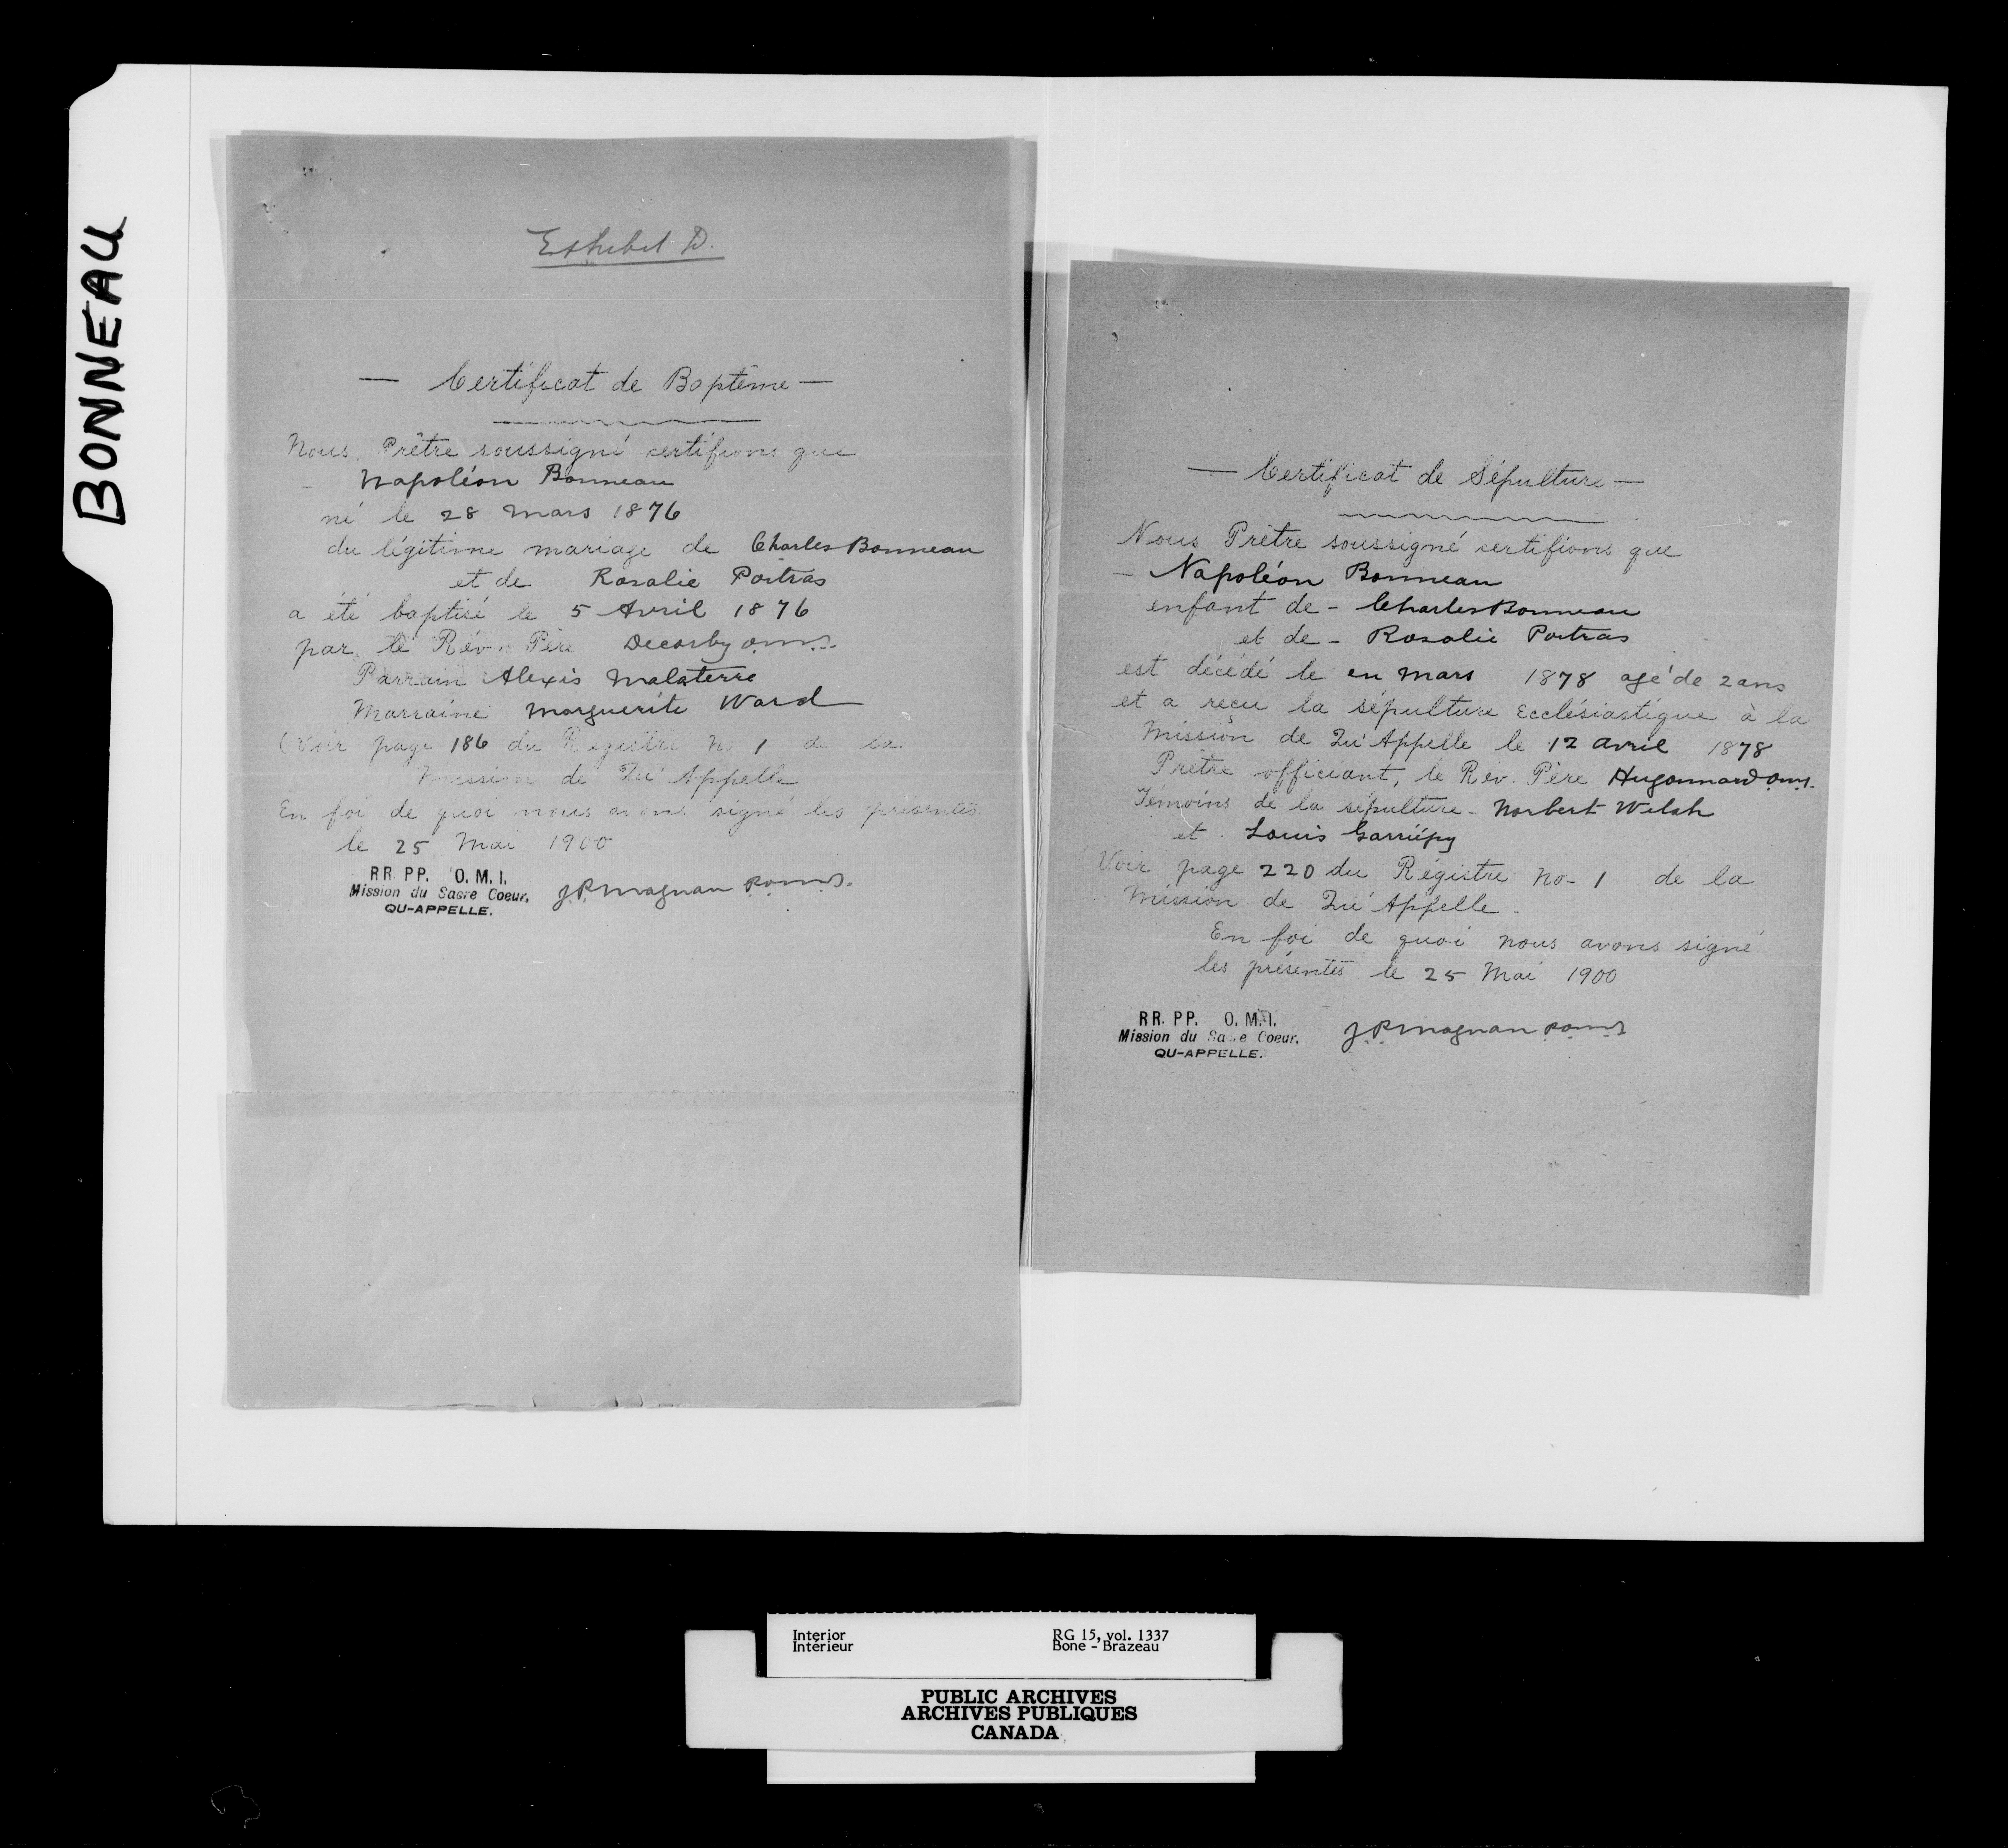 BONNEAU
Exhibit D.
— Certificat de Baptême —
Nous, Prêtre soussigné certifions que
Napoléon Bonneau
né le 28 Mars 1876
du légitime mariage de Charles Bonneau
et de Rosalie Poitras
a été baptisé le 5 Avril 1876
par le Rév. Père Decorby o.m.i.
Parrain Alexis Malaterre
Marraine Marguerite Ward
(Voir page 186 du Régistre No 1 de la
Mission de Qu'Appelle
En foi de quoi nous avons signé les présentes
le 25 Mai 1900
RR. PP. O. M. I.
Mission du Sacre Coeur.
QU-APPELLE.
J.P. Magnan p.o.m.i.
— Certificat de Sépulture —
Nous Prêtre soussigné certifions que
— Napoléon Bonneau
enfant de - Charles Bonneau
et de - Rosalie Poitras
est décédé le en Mars 1878 agé de 2 ans
et a reçu la sépulture Ecclésiastique à la
Mission de Qu'Appelle le 12 Avril 1878
Prêtre officiant, le Rév. Père Hugonnard o.m.i.
Témoins de la sépulture - Norbert Welsh
et Louis Garriépy
Voir page 220 du Régistre No - 1 de la
Mission de Qu'Appelle -
En foi de quoi nous avons signé
les présentes le 25 Mai 1900
RR. PP. O. M. I.
Mission du Sacre Coeur.
QU-APPELLE.
J.P. Magnan p.o.m.i.
Interior
Intérieur
RG 15, vol. 1337
Bone - Brazeau
PUBLIC ARCHIVES
ARCHIVES PUBLIQUES
CANADA